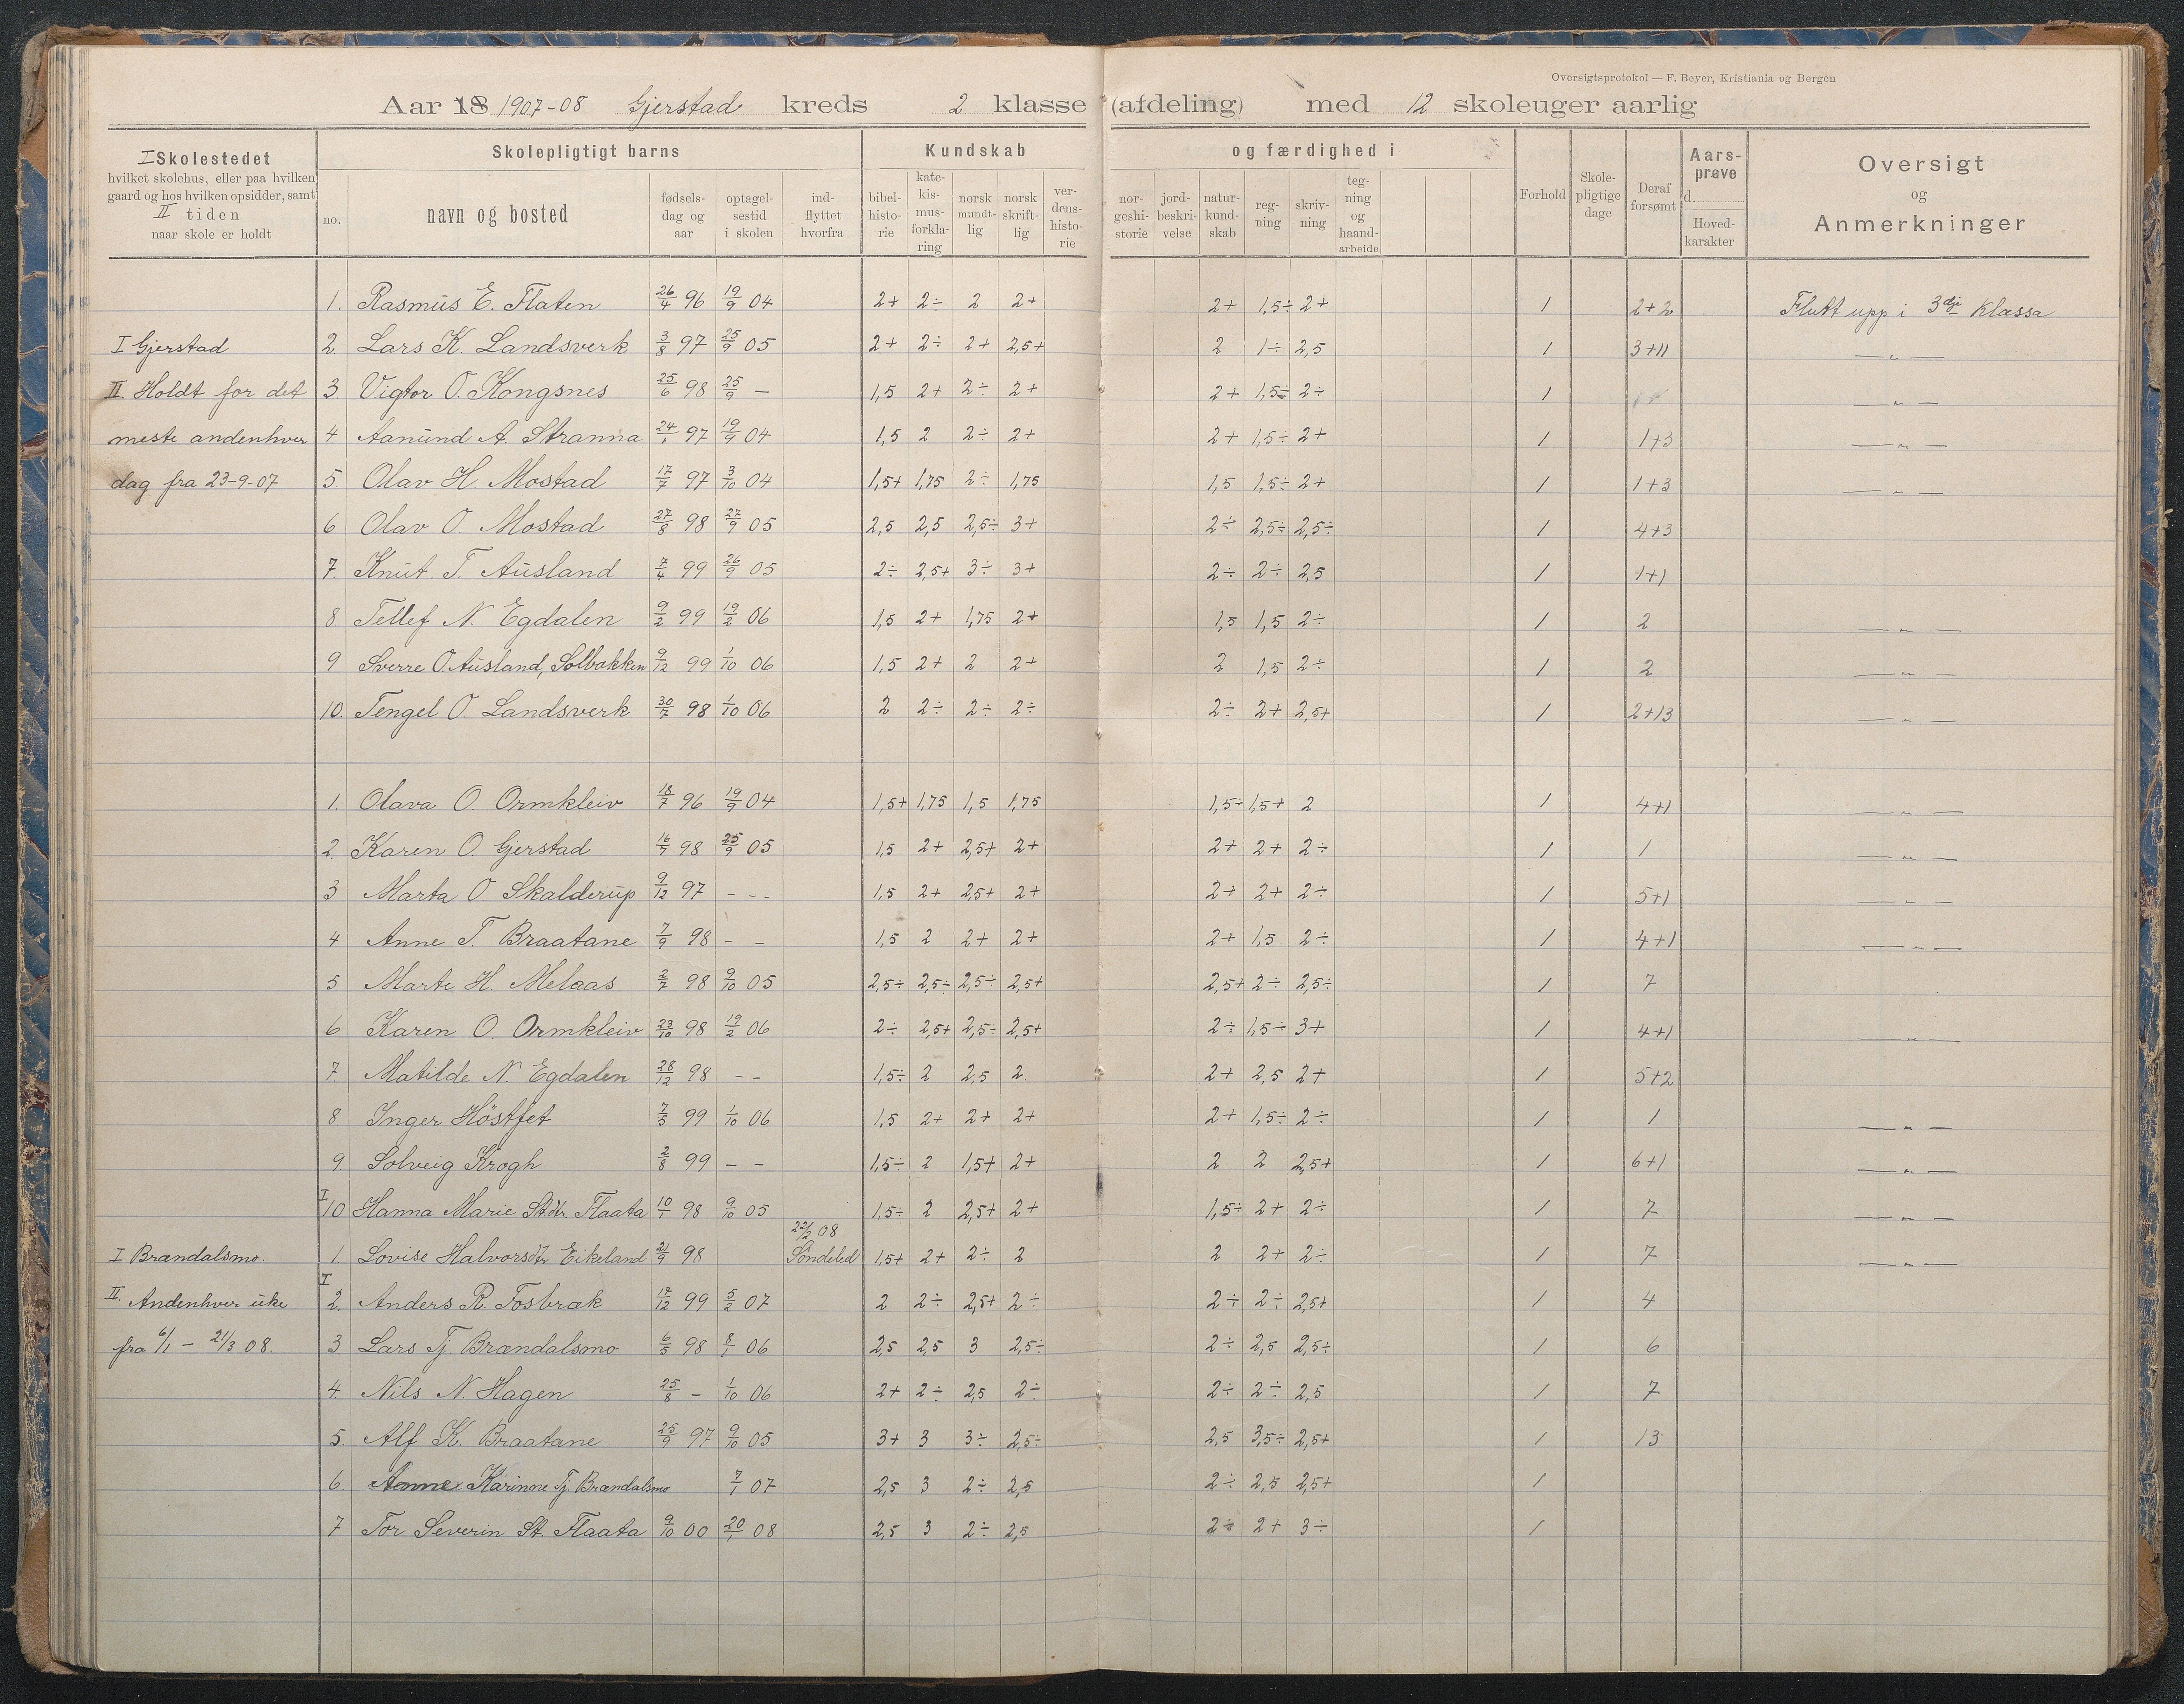 Oversigtsprotokol — F. Beyer, Kristiania og Bergen
Aar 18 1907-08 Gjerstad kreds 2 klasse (afdeling) med 12 skoleuger aarlig
I Skolestedet
hvilket skolehus, eller paa hvilken
gaard og hos hvilken opsidder, samt
II tiden
naar skole er holdt
Skolepligtigt barns
no.
navn og bosted
fødsels-
dag og
aar
optagel-
sestid
i skolen
ind-
flyttet
hvorfra
Kundskab
bibel-
histo-
rie
kate-
kis-
mus-
forkla-
ring
norsk
mundt-
lig
norsk
skrift-
lig
ver-
dens-
histo-
rie
og færdighed i
nor-
geshi-
storie
jord-
beskri-
velse
natur-
kund-
skab
reg-
ning
skriv-
ning
teg-
ning
og
haand-
arbeide
Forhold
Skole-
pligtige
dage
Deraf
forsømt
Aars-
prøve
d.
Hoved-
karakter
Oversigt
og
Anmerkninger
1. Rasmus E. Flaten 26/4 96 19/9 04 2+ 2÷ 2 2+ 2+ 1,5÷ 2+ 1 2+2 Flutt upp i 3dje klassa
I Gjerstad 2. Lars K. Landsverk 3/8 97 25/9 05 2+ 2÷ 2+ 2,5+ 2 1÷ 2,5 1 3+11 — " —
II. Holdt for det 3. Vigtor O. Kongsnes 25/6 98 25/9 — 1,5 2+ 2÷ 2+ 2+ 1,5÷ 2÷ 1 — " —
meste andenhver 4 Aanund A. Stranna 24/1 97 19/9 04 1,5 2 2÷ 2+ 2+ 1,5÷ 2+ 1 1+3 — " —
dag fra 23-9-07 5. Olav H. Mostad 17/7 97 3/10 04 1,5+ 1,75 2÷ 1,75 1,5 1,5÷ 2+ 1 1+3 — " —
6 Olav O. Mostad 27/8 98 27/9 05 2,5 2,5 2,5÷ 3+ 2÷ 2,5÷ 2,5÷ 1 4+3
7. Knut T. Ausland 7/4 99 26/9 05 2÷ 2,5+ 3÷ 3+ 2÷ 2÷ 2,5 1 1+1
8 Tellef N. Egdalen 9/2 99 19/2 06 1,5 2+ 1,75 2+ 1,5 1,5 2÷ 1 2 — " —
9 Sverre O. Ausland, Solbakken 9/12 99 1/10 06 1,5 2+ 2 2+ 2 1,5 2÷ 1 2 — " —
10. Tengel O. Landsverk 30/7 98 1/10 06 2 2÷ 2÷ 2÷ 2÷ 2+ 2,5+ 1 2+13 — " —
1. Olava O. Ormkleiv 18/7 96 19/9 04 1,5+ 1,75 1,5 1,75 1,5÷ 1,5+ 2 1 4+1 — " —
2. Karen O. Gjerstad 16/7 98 25/9 05 1,5 2+ 2,5+ 2+ 2+ 2+ 2÷ 1 1 — " —
3 Marta O Skalderup 9/12 97 - - - 1,5 2+ 2,5+ 2+ 2+ 2+ 2÷ 1 5+1 — " —
4 Anne T. Braatane 7/9 98 - - 1,5 2 2+ 2+ 2+ 1,5 2÷ 1 4+1 — " —
5 Marte H. Melaas 2/7 98 9/10 05 2,5÷ 2,5÷ 2,5÷ 2,5+ 2,5+ 2÷ 2,5÷ 1 7
6 Karen O. Ormkleiv 23/10 98 19/2 06 2÷ 2,5+ 2,5÷ 2,5+ 2÷ 1,5÷ 3+ 1 4+1 — " —
7. Matilde N. Egdalen 28/12 98 - - 1,5÷ 2 2,5 2. 2+ 2,5 2+ 1 5+2
8. Inger Höstfet 7/5 99 1/10 06 1,5 2+ 2+ 2+ 2+ 1,5÷ 2÷ 1 1 — " —
9. Solveig Krogh 2/8 99 - - 1,5÷ 2 1,5+ 2+ 2 2 2,5+ 1 6+1 — " —
I 10 Hanna Marie St.dtr. Flaata 10/1 98 9/10 05 1,5÷ 2 2,5+ 2+ 1,5÷ 2+ 2÷ 1 7 — " —
22/2 08
I Brændalsmo. 1. Lovise Halvorsdtr Eikeland 21/9 98 Söndeled 1,5+ 2+ 2÷ 2 2 2+ 2÷ 1 7 — " —
II. Andenhver uke I 2. Anders R. Fosbræk 17/12 99 5/2 07 2 2÷ 2,5+ 2÷ 2÷ 2÷ 2,5+ 1 4
fra 6/1 — 21/3 08. 3 Lars Tj. Brændalsmo 6/5 98 8/1 06 2,5 2,5 3 2,5÷ 2÷ 2,5 2,5÷ 1 6
4. Nils N. Hagen 25/8 - 1/10 06 2+ 2÷ 2,5 2÷ 2÷ 2÷ 2,5 1 7
5. Alf K. Braatane 25/9 97 9/10 05 3+ 3 3÷ 2,5÷ 2,5 3,5÷ 2,5+ 1 13
6 Anne Karinne Tj. Brændalsmo 7/1 07 2,5 3 2÷ 2,5 2÷ 2,5 2,5+ 1
7 Tor Severin St. Flaata 9/10 00 20/1 08 2,5 3 2÷ 2,5 2÷ 2+ 3÷ 1